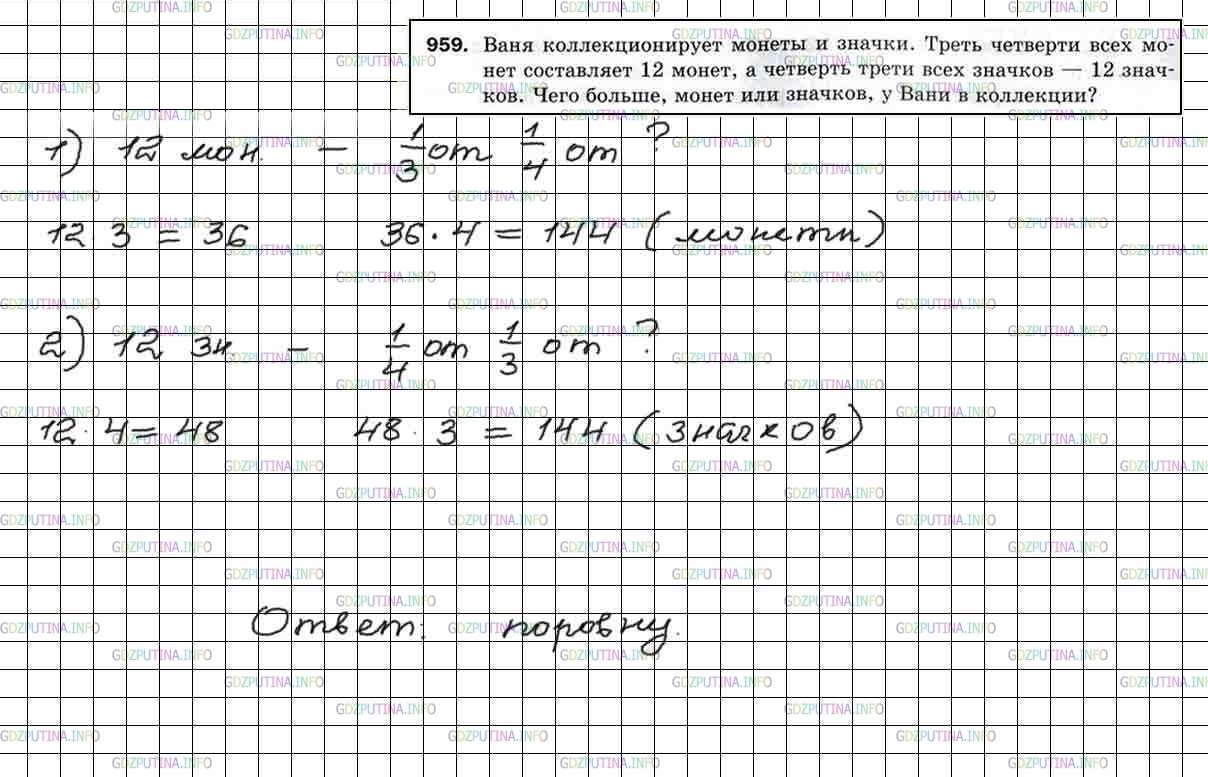 959. Ваня коллекционирует монеты и значки. Треть четверти всех мо-
нет составляет 12 монет, а четверть трети всех значков — 12 знач-
ков. Чего больше, монет или значков, у Вани в коллекции?
1) 12 мон. — 1/3 от 1/4 от ?
12 · 3 = 36 36 · 4 = 144 (монеты)
2) 12 зн. — 1/4 от 1/3 от ?
12 · 4 = 48 48 · 3 = 144 (значков)
Ответ: поровну.
GDZPUTINA.INFO